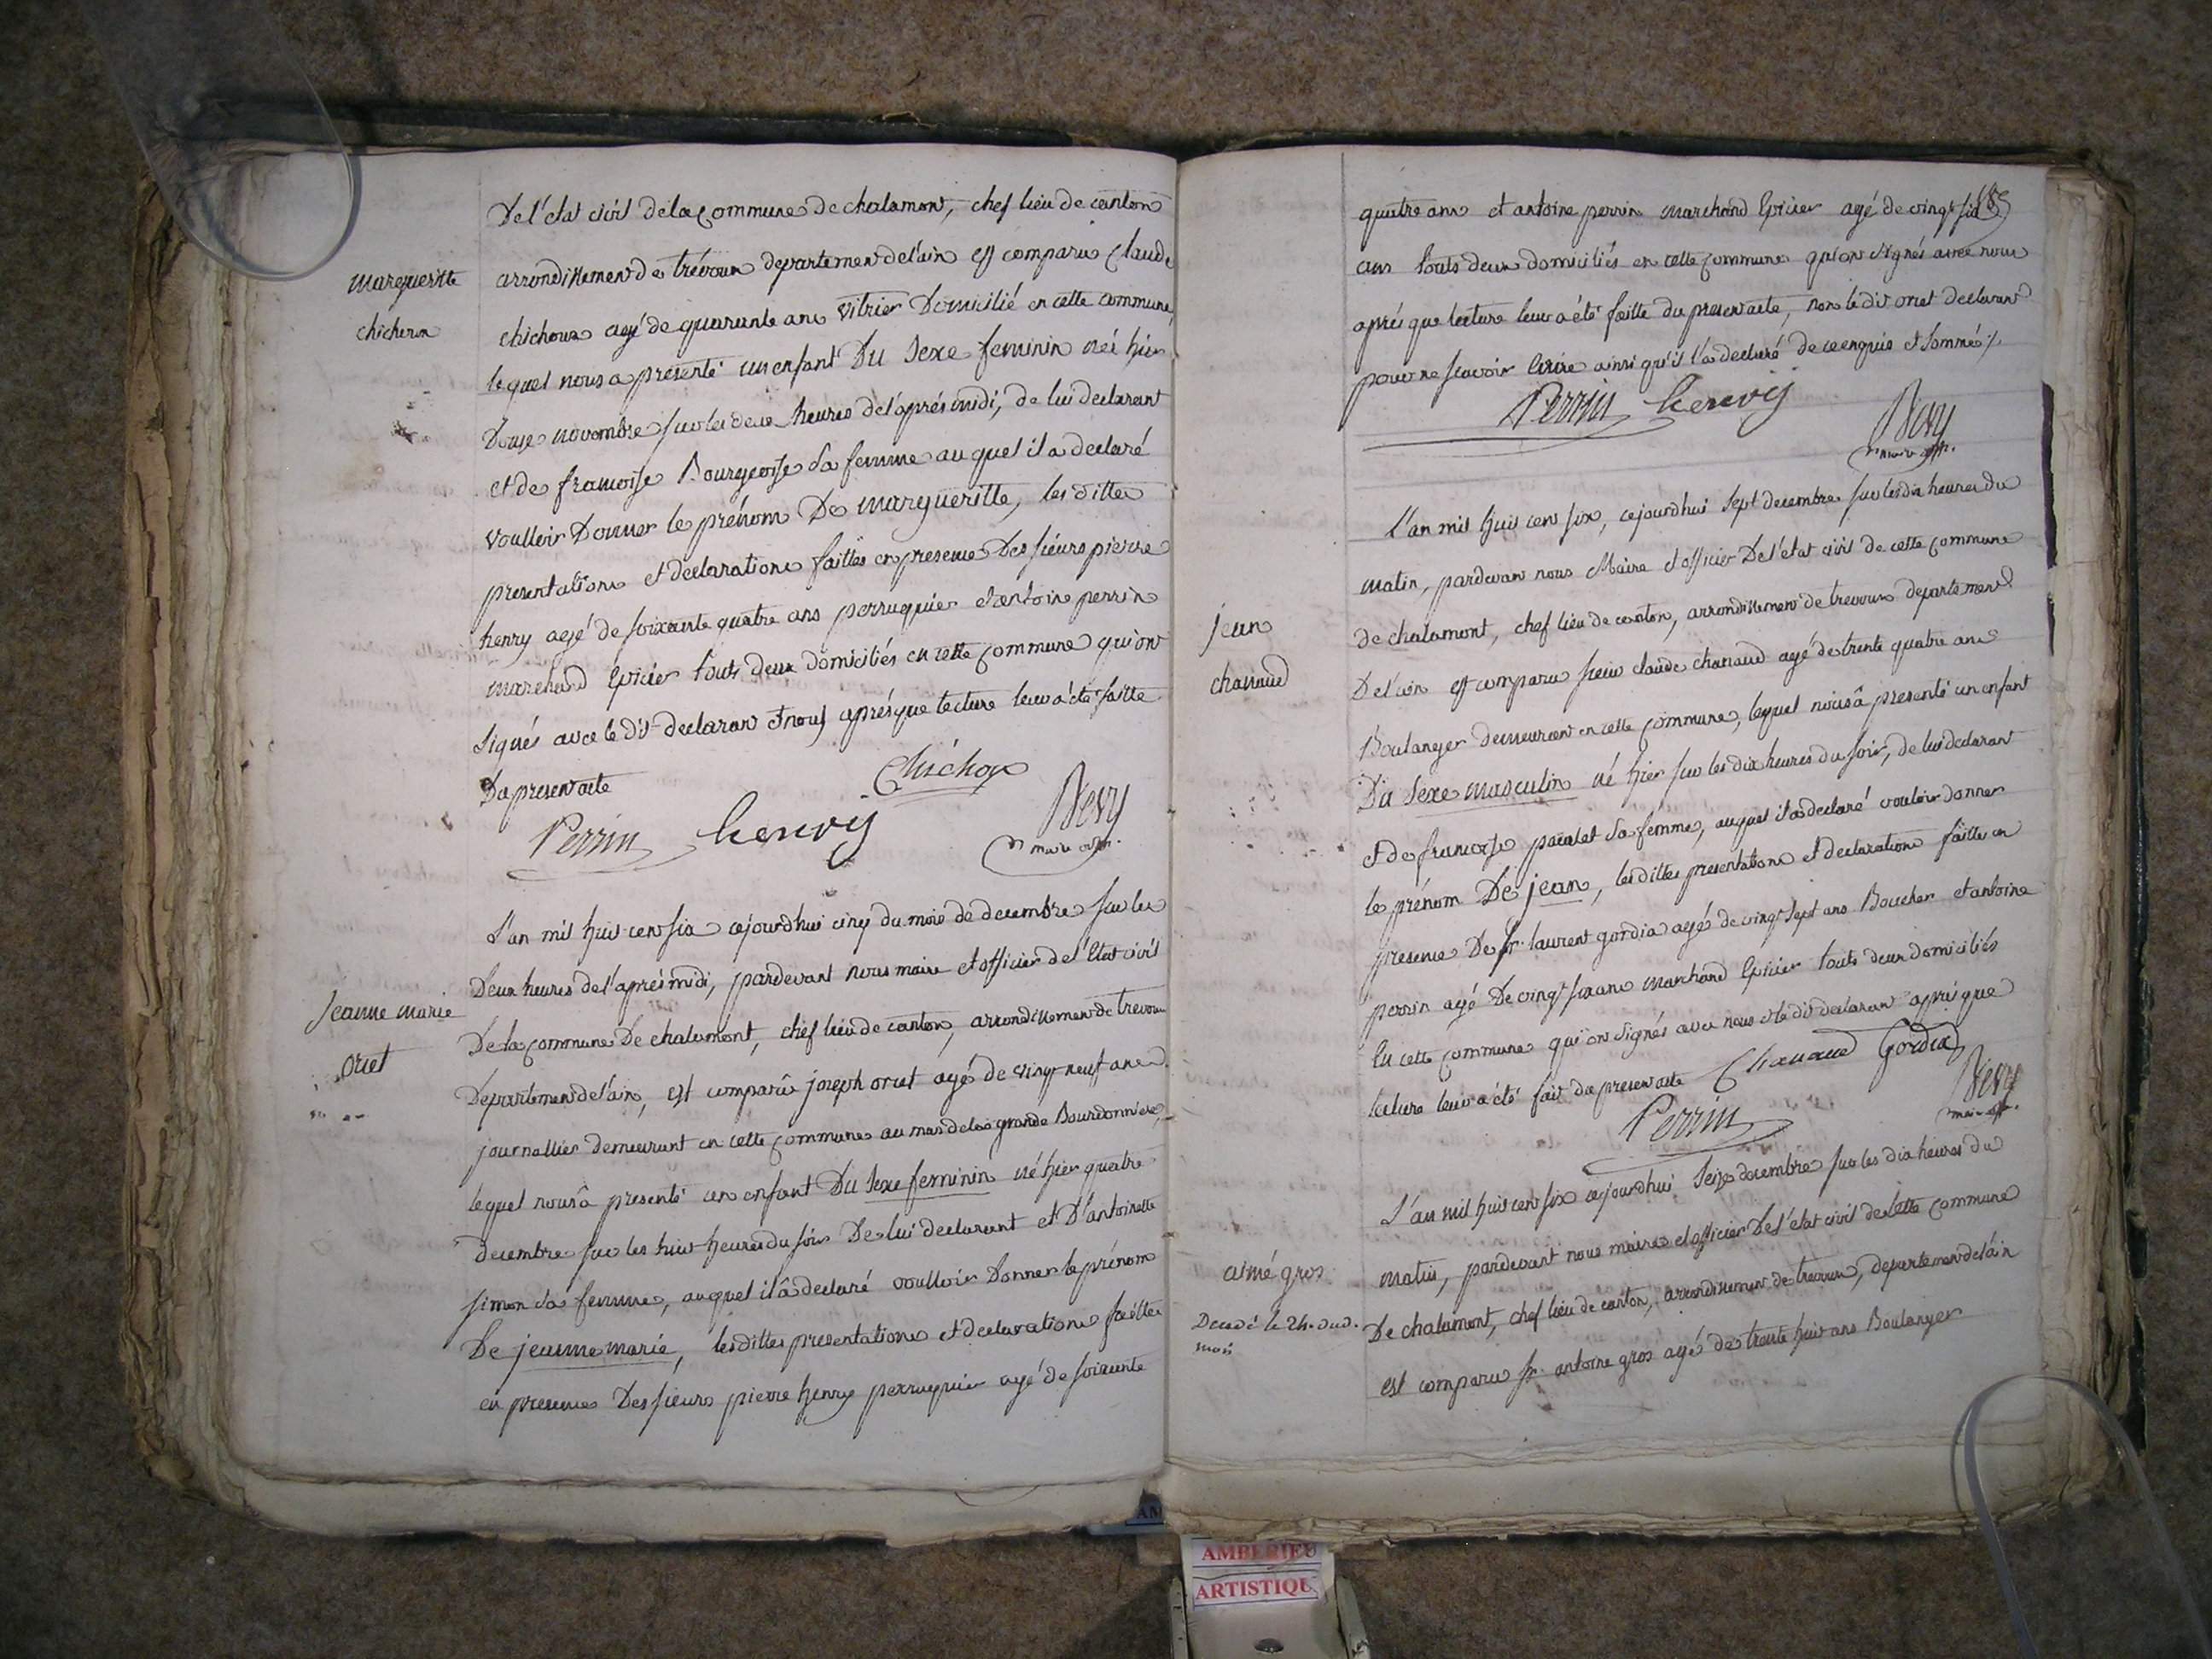 De l'etat civil de la commune de chalamont, chef lieu de canton
Marguerite
chicheron
arrondissement de trévoux departement de l'ain est comparu Claude
chichoux agé de quarante ans vitrier Domicilié en cette commune,
lequel nous a presenté un enfant Du Sexe feminin née hier
Douze novembre sur les deux heures de l'aprés midi, de lui declarant
et de francoise Bourgeoise sa femme au quel il a declaré
voulloir Donner le prénom De marguerite, les dittes
presentations et declarations faittes en presence Des sieurs pierre
henry agé de soixante quatre ans perruquier et antoine perrin
marchand Epicier touts deux domiciliés en cette commune qui ont
signés avec le dit declarant et nous aprés que lecture leur a été faitte
Du present acte
Chichox
Perrin henry Nevy
maire off.
L'an mil huit cent six cejourdhui cinq du mois de decembre sur les
Deux heures de l'aprés midi, pardevant nous maire et officier de l'Etat civil
Jeanne marie
oriet
De la commune De chalamont, chef lieu de canton, arrondissement de trevoux
Departement de l'ain, est comparû joseph oriet agé de vingt neuf ans
journallier demeurant en cette commune au mas de la grande Bourdonniere,
lequel nous â presenté un enfant Du Sexe feminin né hier quatre
decembre sur les huit heures du soir De lui declarant et D'antoinette
simon sa femme, auquel il â declaré voulloir Donner le prénom
De jeanne marie, les dittes presentations et declarations faittes
en presence Des sieurs pierre henry perruquier agé de soixante
quatre ans et antoine perrin marchand Epicier agé de vingt six
ans touts deux domiciliés en cette commune qui ont signés avec nous
aprés que lecture leur a été faitte du present acte, non le dit oriet declarant
pour ne scavoir Ecrire ainsi qu'il l'a declaré de ce enquis et sommé
Perrin henry
Nevy
maire off.
L'an mil huit cent six, cejourdhui sept decembre sur les dix heures du
matin, pardevant nous Maire et officier De l'etat civil de cette commune
jean
chanaud
de chalamont, chef lieu de canton, arrondissement de trevoux departement
De l'ain est comparu sieur claude chanaud agé de trente quatre ans
Boulanger demeurant en cette commune, lequel nous â presenté un enfant
Du Sexe masculin né hier sur les dix heures du soir, de lui declarant
et de francoise sa femme, auquel il a declaré vouloir donner
le prénom De jean, les dittes presentations et declarations faittes en
presence De Sr. laurent gordia agé de vingt sept ans Boucher et antoine
perrin agé De vingt six ans marchand Epicier touts deux domiciliés
En cette commune qui ont signés avec nous et le dit declarant aprés que
lecture leur a été fait du present acte Chanaud Gordia
Perrin
Nevy
maire off.
L'an mil huit cent six cejourdhui Seize decembre sur les dix heures du
matin, pardevant nous maire et officier De l'etat civil de cette commune
aimé gros
Decedé le 24. dud.
mois
De chalamont, chef lieu de canton, arrondissement de trevoux, departement de l'ain
est comparu Sr. antoine gros agé de trente huit ans Boulanger
AM
AMBERIEU
ARTISTIQU